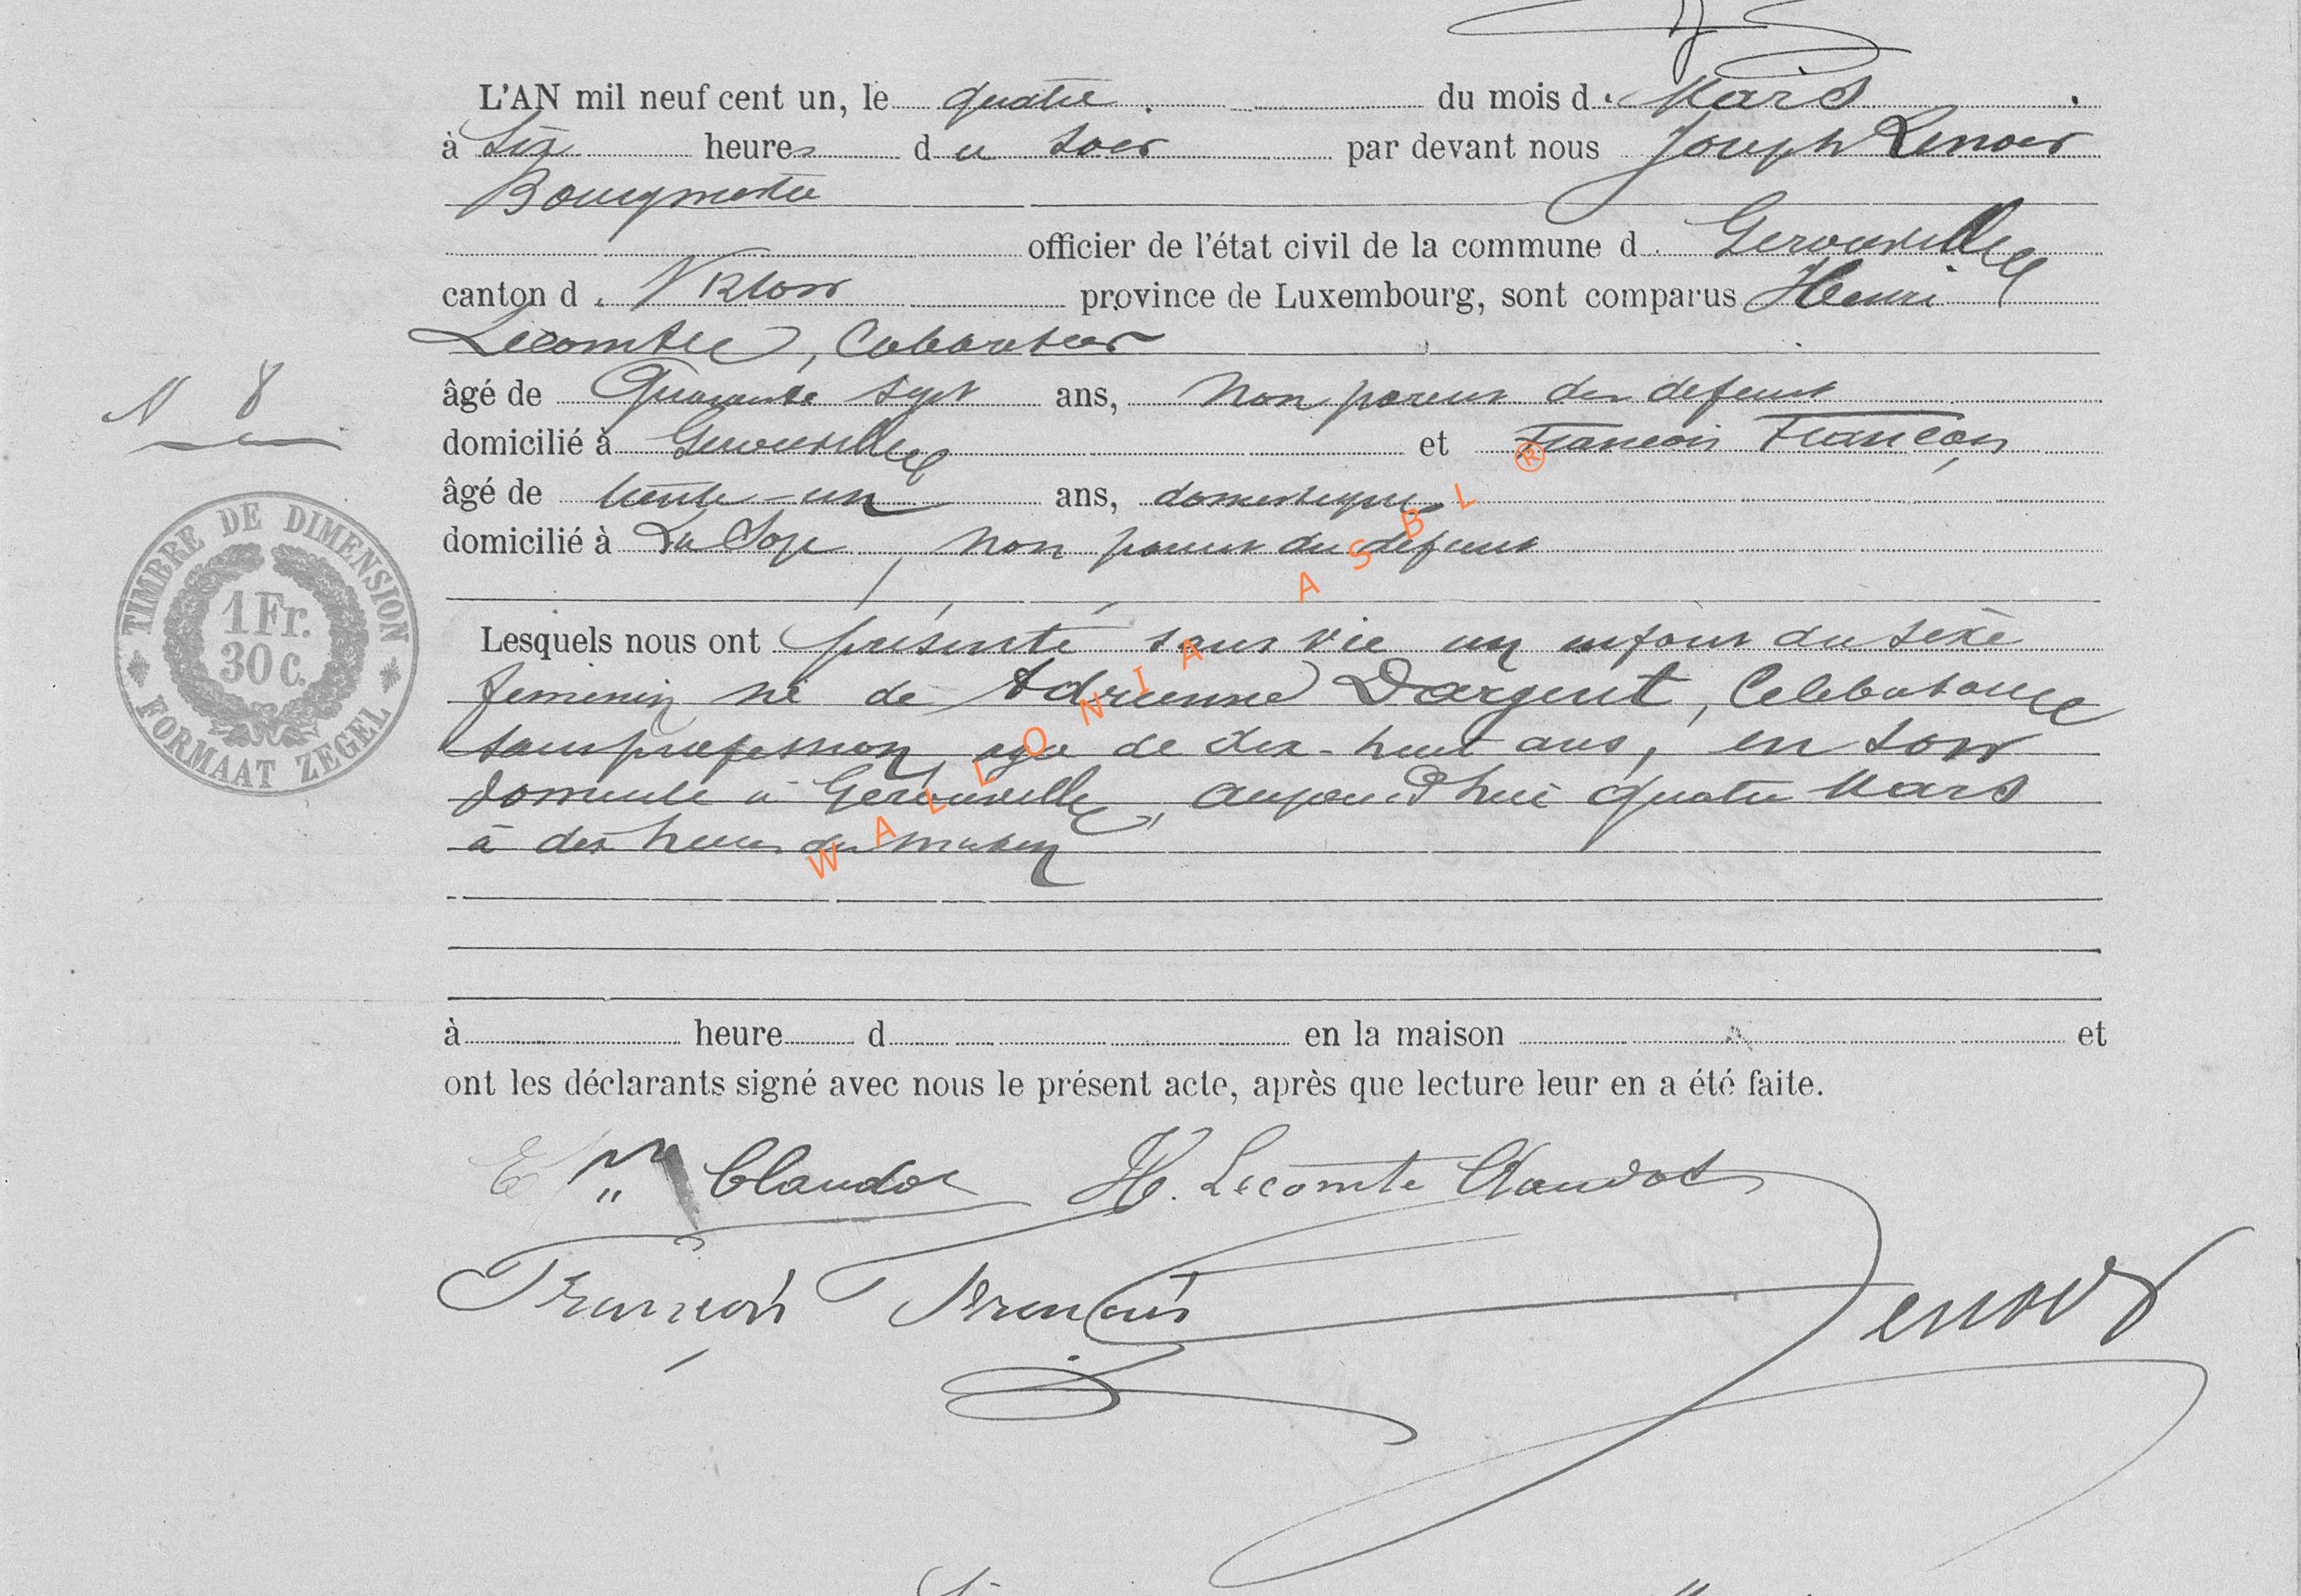 L'AN mil neuf cent un, le quatre du mois d. Mars
à Six heures du soir par devant nous Joseph Lenoir
Bourgmestre
officier de l'état civil de la commune d. Gerouville
canton d. Virton province de Luxembourg, sont comparus Henri
Lecomte, Cabaretier
N 8
âgé de Quarante sept ans, non parent du defunt
domicilié à Gerouville et François François
âgé de trente-un ans, domestique
domicilié à La Soye, non parent du defunt
Lesquels nous ont présenté sans vie un enfant du sexe
feminin né de Adrienne Dargent, Celebataire
sans profession, agée de dix-huit ans, en son
domicile à Gerouville, aujourd'hui quatre Mars
à dix heures du matin
à heure d en la maison et
ont les déclarants signé avec nous le présent acte, après que lecture leur en a été faite.
Claudot H. Lecomte Claudot
François François Lenoir
TIMBRE DE DIMENSION
1 Fr.
30 c.
FORMAAT ZEGEL
WALLONIA ASBL ®